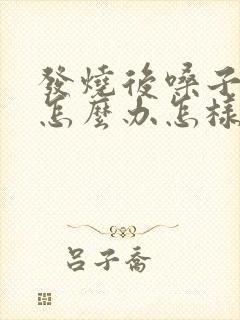 發燒後嗓子
怎麼办怎樣
呂子喬